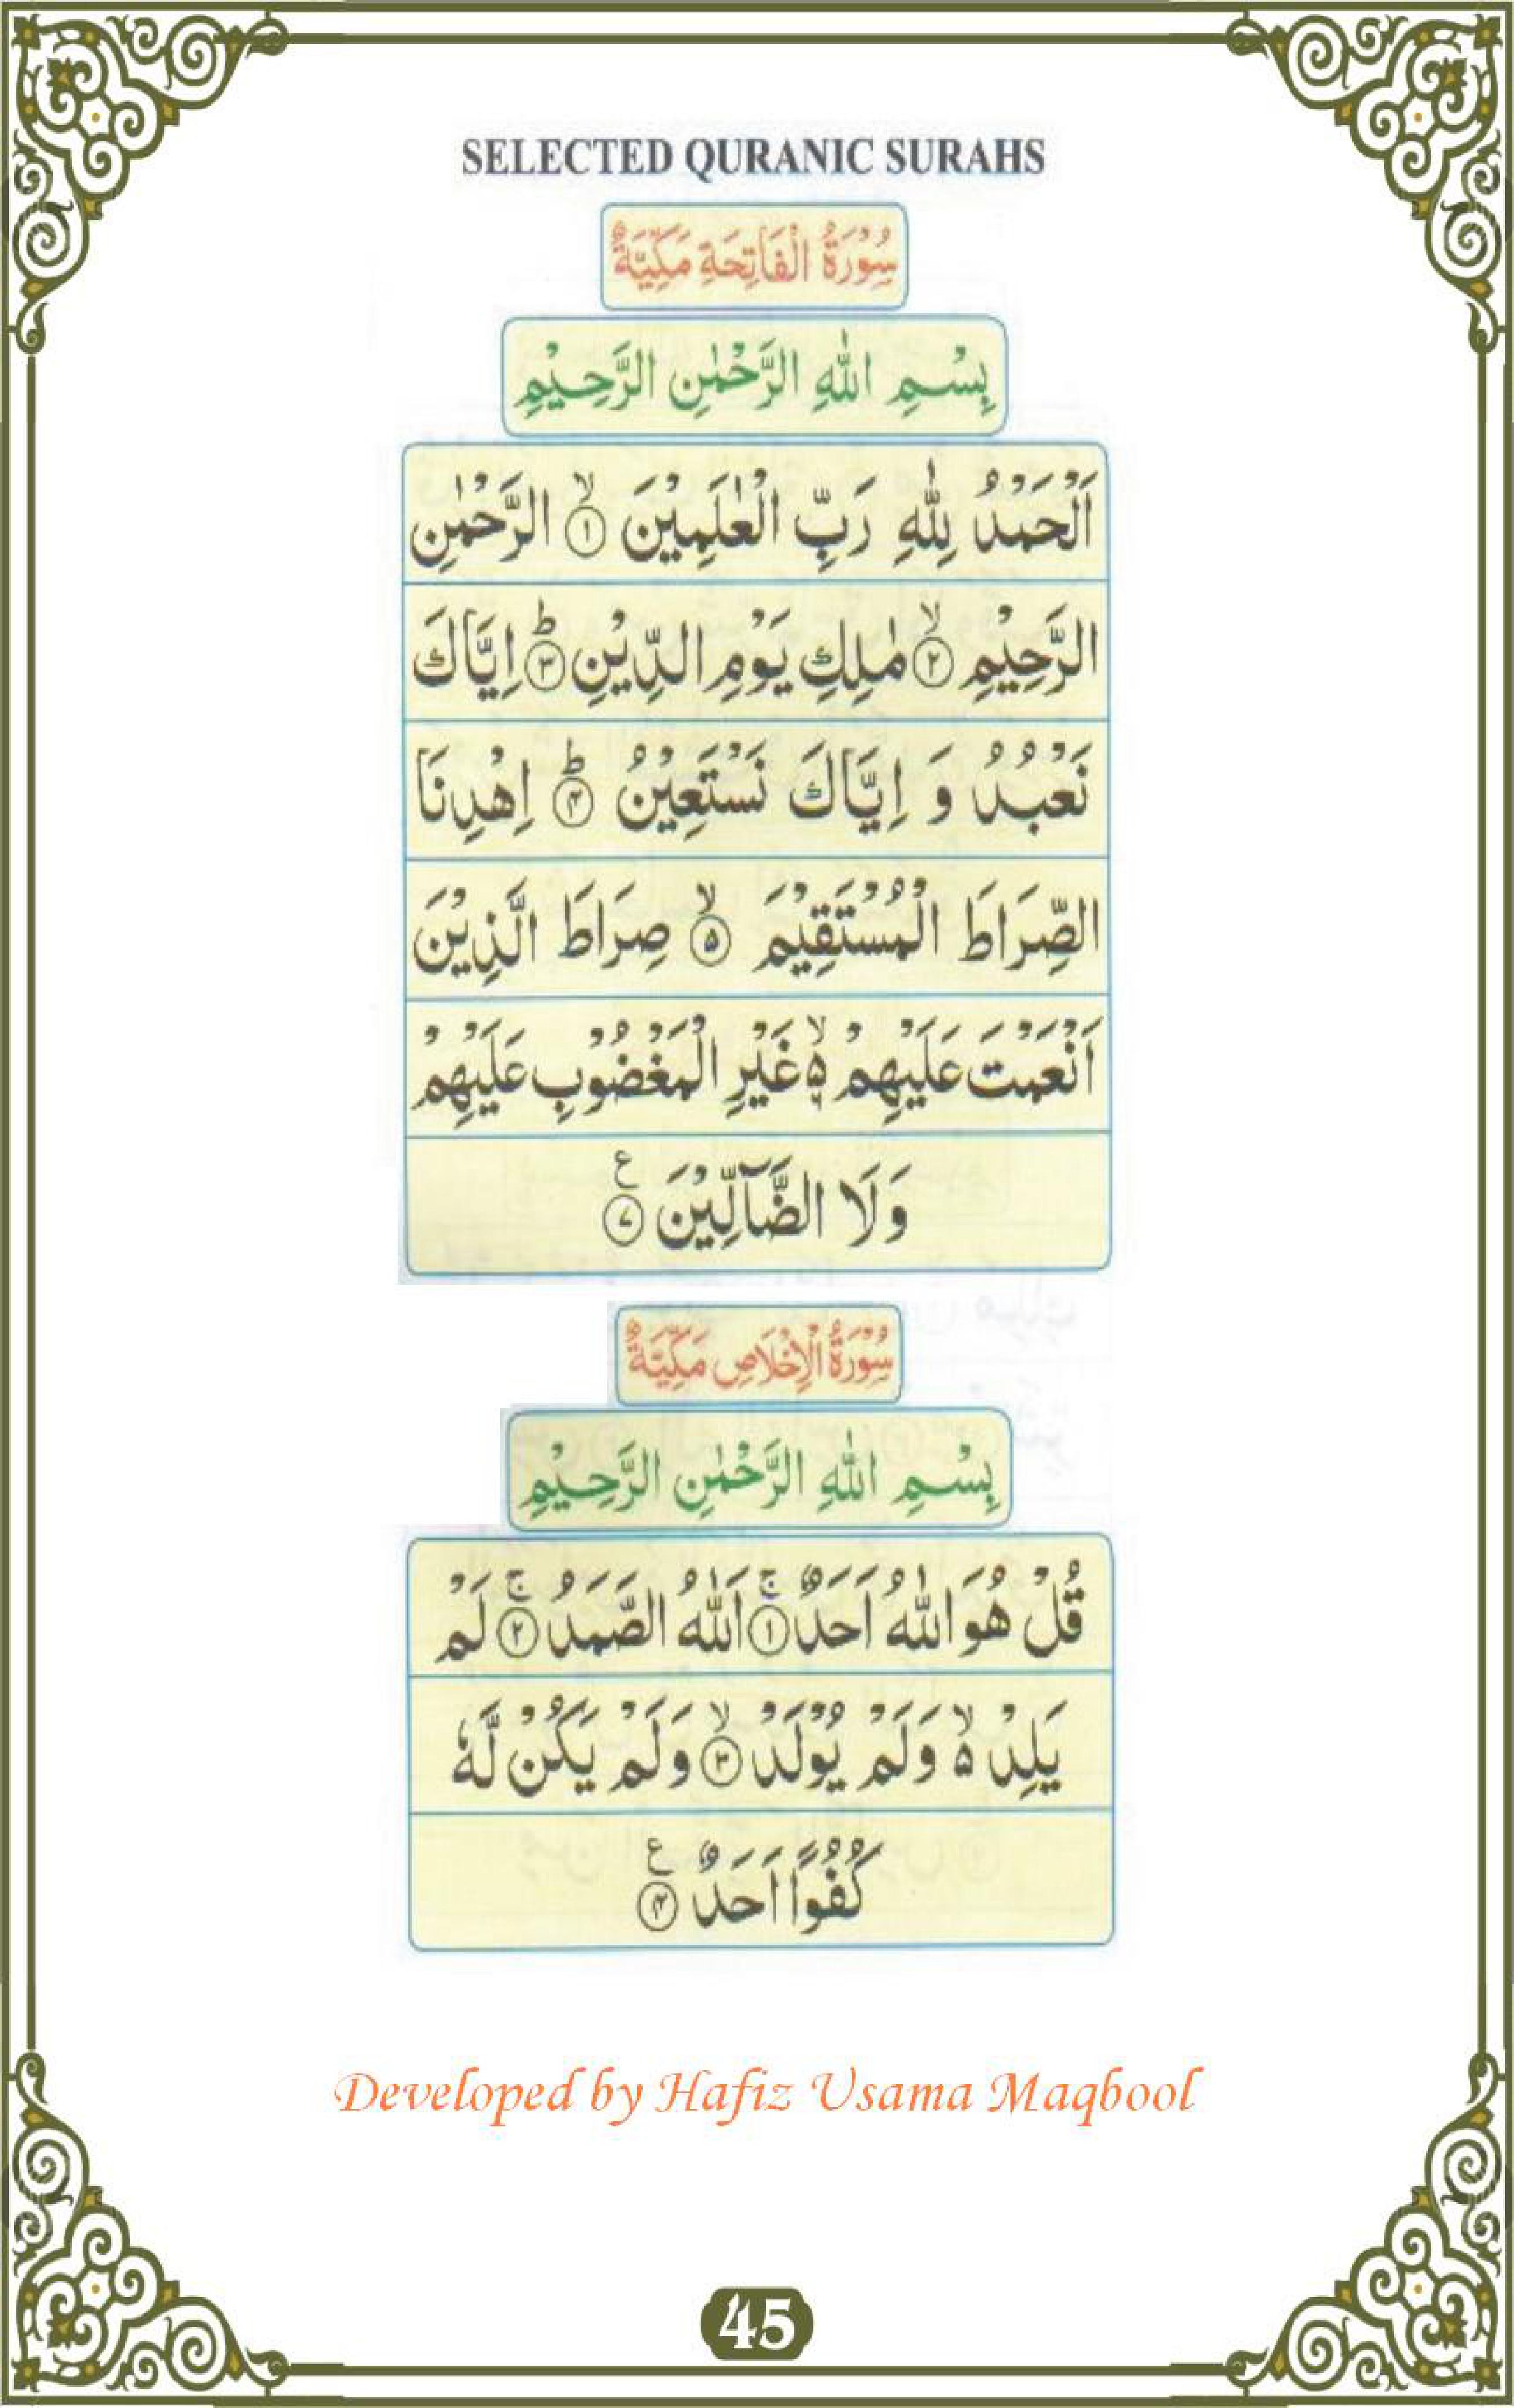 SELECTED QURANIC SURAHS
سُوْرَةُ الْفَاتِحَةِ مَكِّيَّةٌ
بِسْمِ اللّٰهِ الرَّحْمٰنِ الرَّحِيْمِ
اَلْحَمْدُ لِلّٰهِ رَبِّ الْعٰلَمِيْنَ ۙ﴿۱﴾ الرَّحْمٰنِ
الرَّحِيْمِ ۙ﴿۲﴾ مٰلِكِ يَوْمِ الدِّيْنِ ؕ﴿۳﴾ اِيَّاكَ
نَعْبُدُ وَ اِيَّاكَ نَسْتَعِيْنُ ؕ﴿۴﴾ اِهْدِنَا
الصِّرَاطَ الْمُسْتَقِيْمَ ۙ﴿۵﴾ صِرَاطَ الَّذِيْنَ
اَنْعَمْتَ عَلَيْهِمْ ۙ۵ غَيْرِ الْمَغْضُوْبِ عَلَيْهِمْ
وَلَا الضَّآلِّيْنَ ﴿۷﴾ ع
سُوْرَةُ الْاِخْلَاصِ مَكِّيَّةٌ
بِسْمِ اللّٰهِ الرَّحْمٰنِ الرَّحِيْمِ
قُلْ هُوَ اللّٰهُ اَحَدٌ ۚ﴿۱﴾ اَللّٰهُ الصَّمَدُ ۚ﴿۲﴾ لَمْ
يَلِدْ ۙ۵ وَلَمْ يُوْلَدْ ۙ﴿۳﴾ وَلَمْ يَكُنْ لَّهٗ
كُفُوًا اَحَدٌ ﴿۴﴾ ع
Developed by Hafiz Usama Maqbool
45